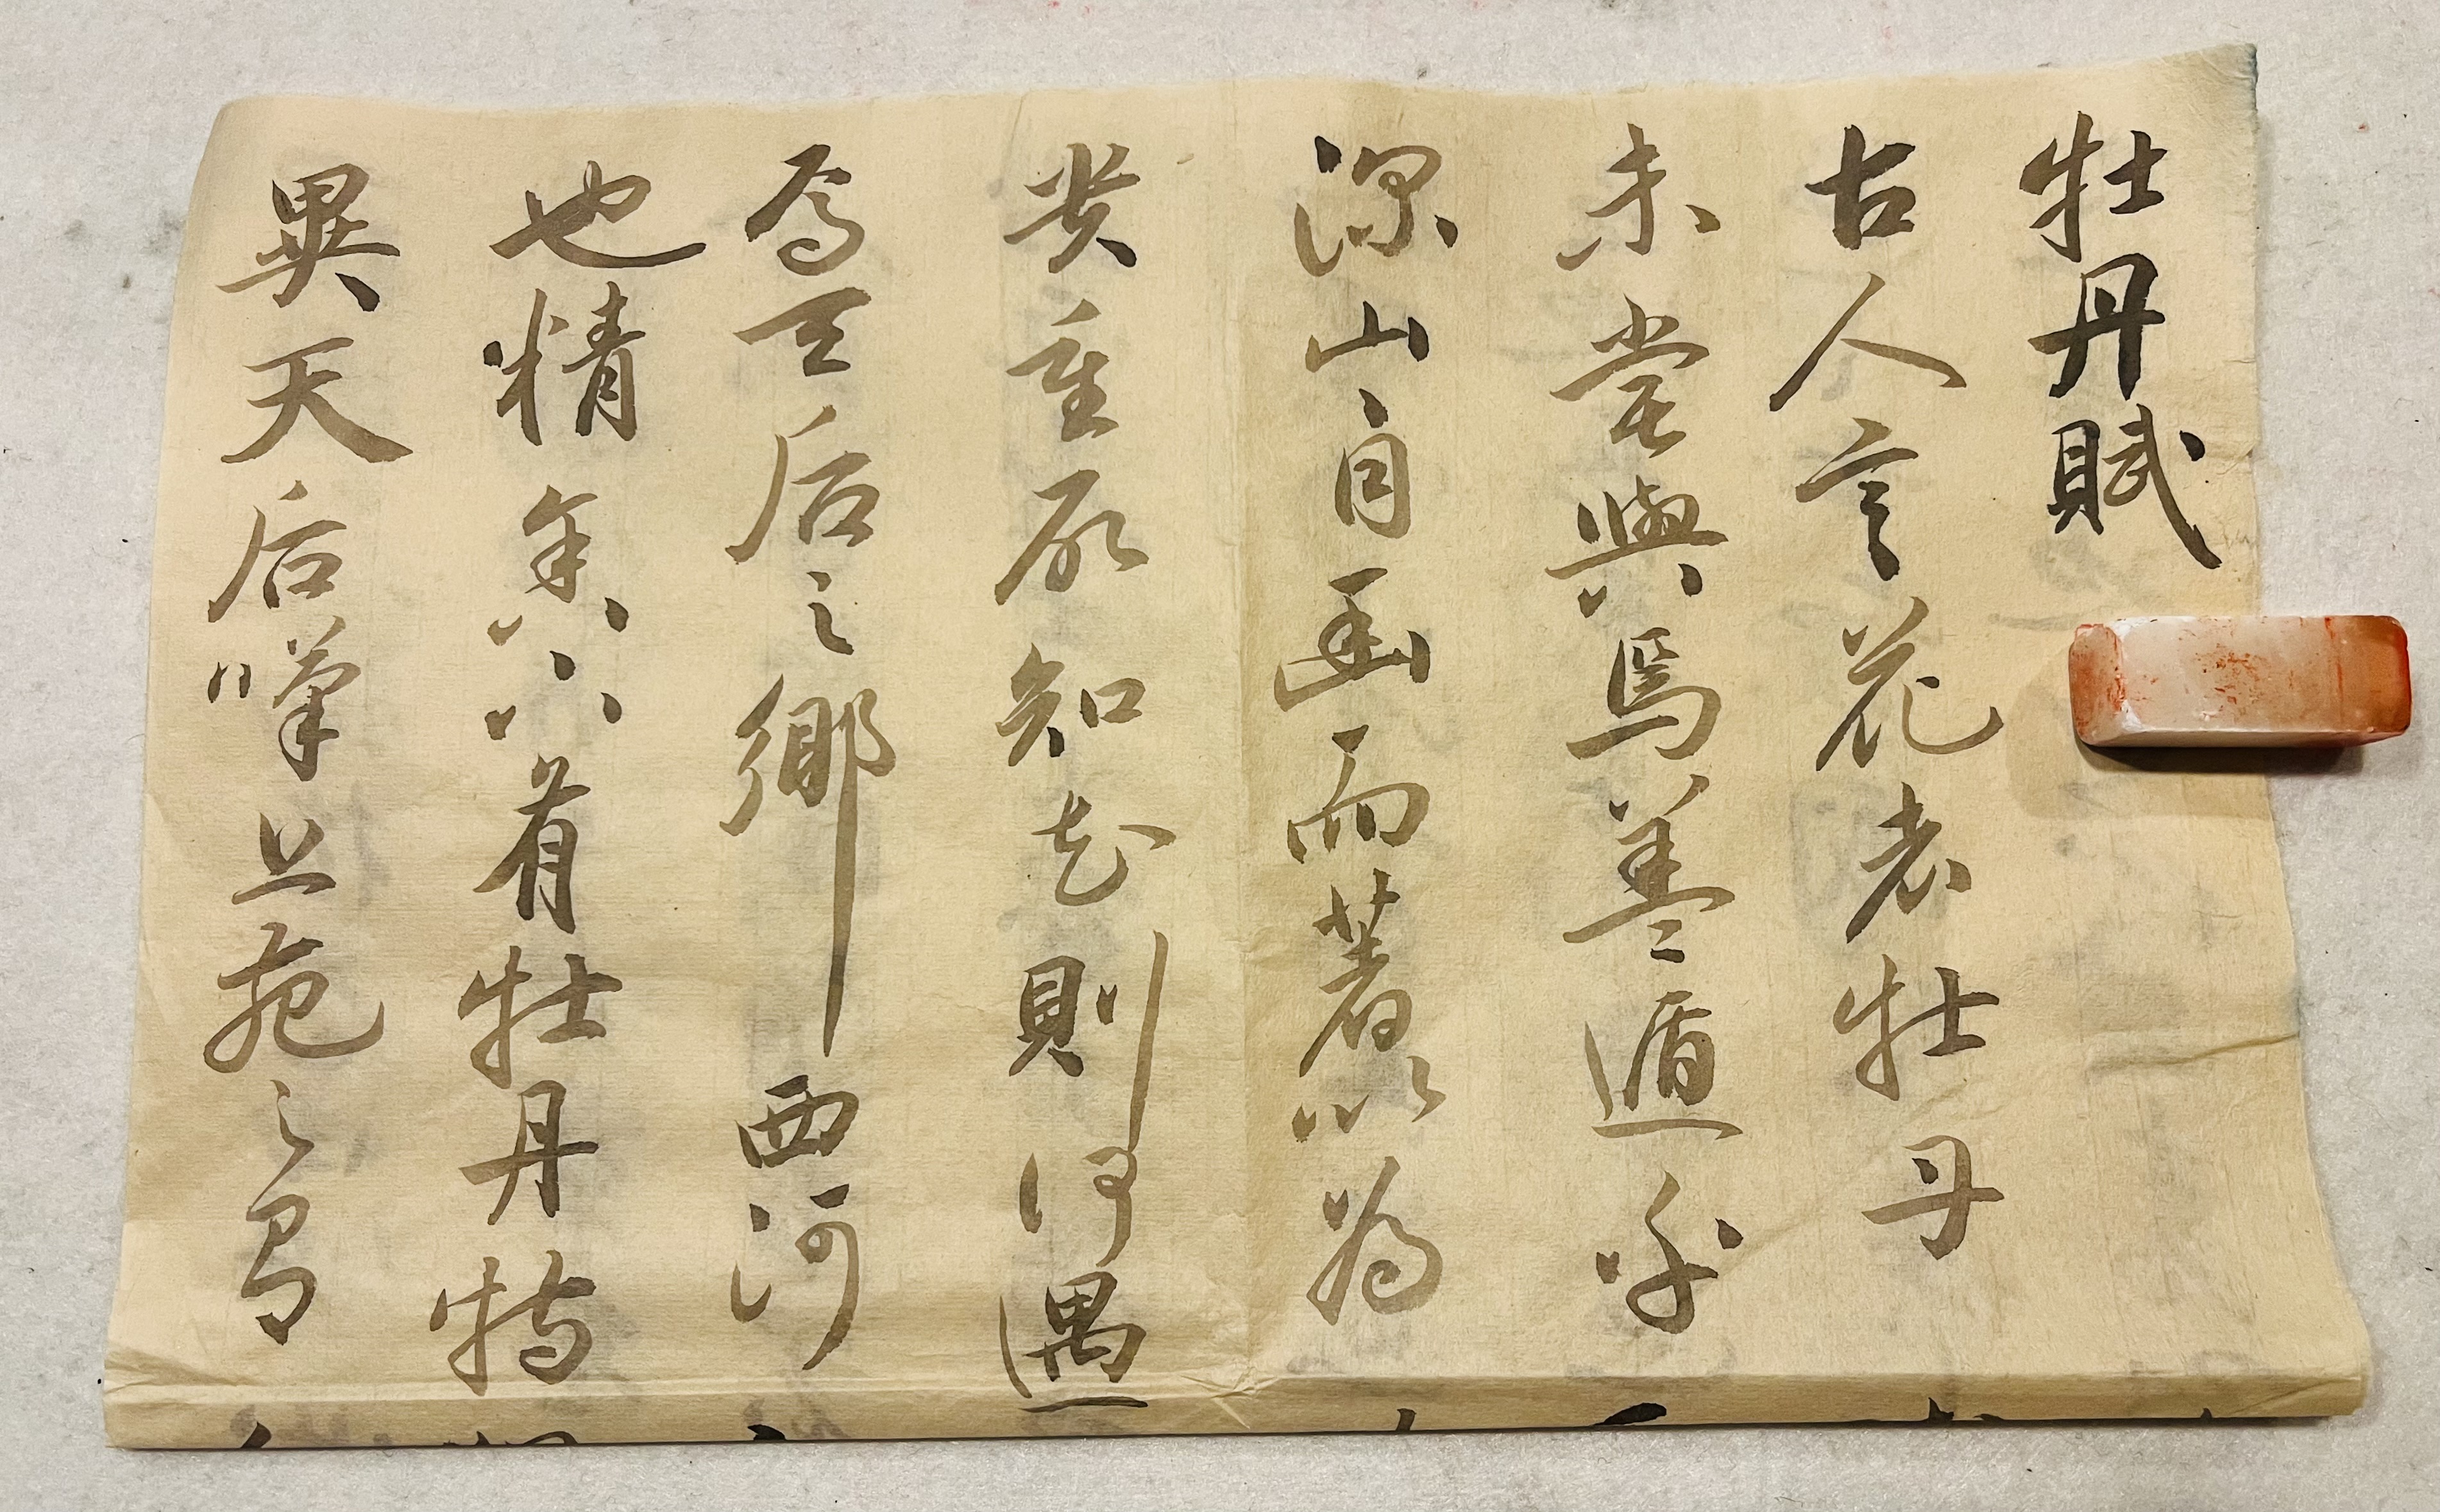 牡丹賦
古人言花者牡丹
未嘗與焉蓋遁乎
深山自幽而著以為
貴重所知花則何遇
焉天后之鄉西河
也精有牡丹特
異天后嘆上苑之有